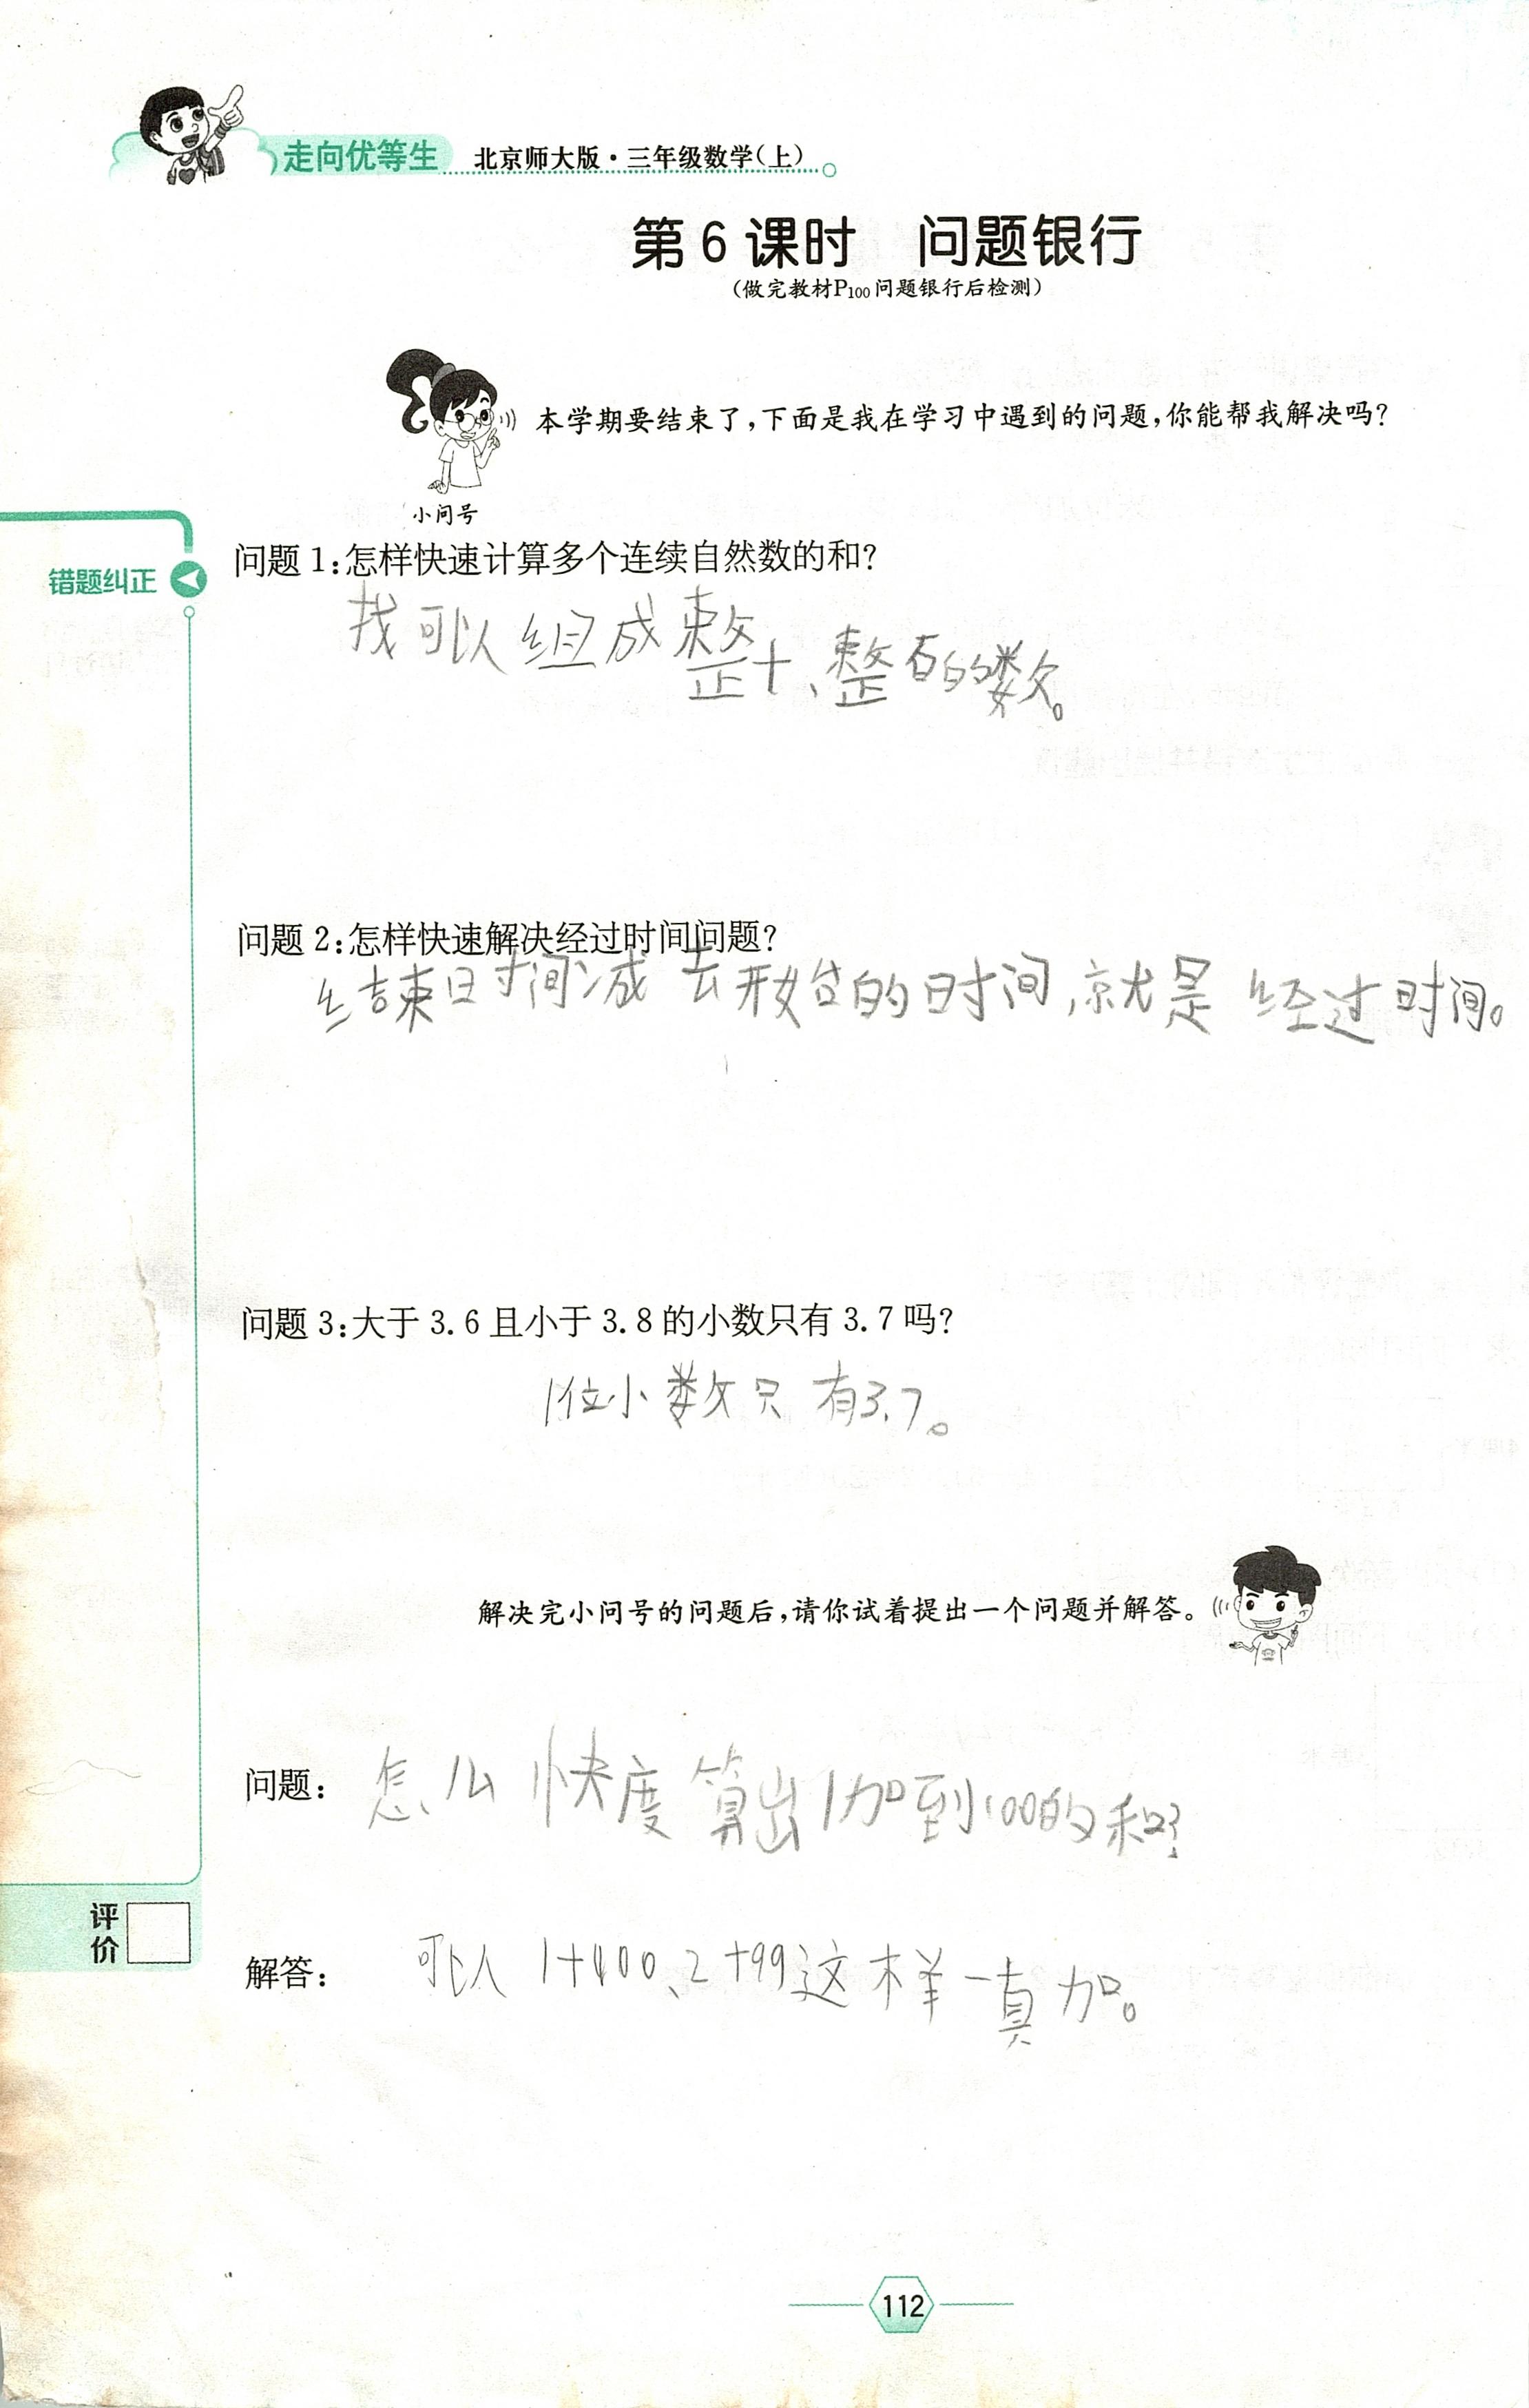 走向优等生 北京师大版·三年级数学(上)
第6课时 问题银行
(做完教材P100问题银行后检测)
本学期要结束了,下面是我在学习中遇到的问题,你能帮我解决吗?
小问号
错题纠正
问题1:怎样快速计算多个连续自然数的和?
找可以组成整十、整百的数。
问题2:怎样快速解决经过时间问题?
结束时间减去开始的时间,就是经过时间。
问题3:大于3.6且小于3.8的小数只有3.7吗?
1位小数只有3.7。
解决完小问号的问题后,请你试着提出一个问题并解答。
问题:怎么快度算出1加到100的和?
评价
解答:可以1+100、2+99这样一真加。
112